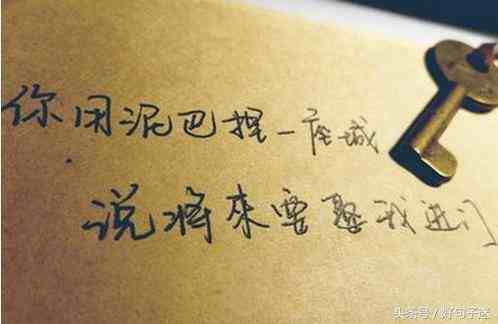 你用泥巴捏一座城
说将来要娶我进门
头条号/好句子迷